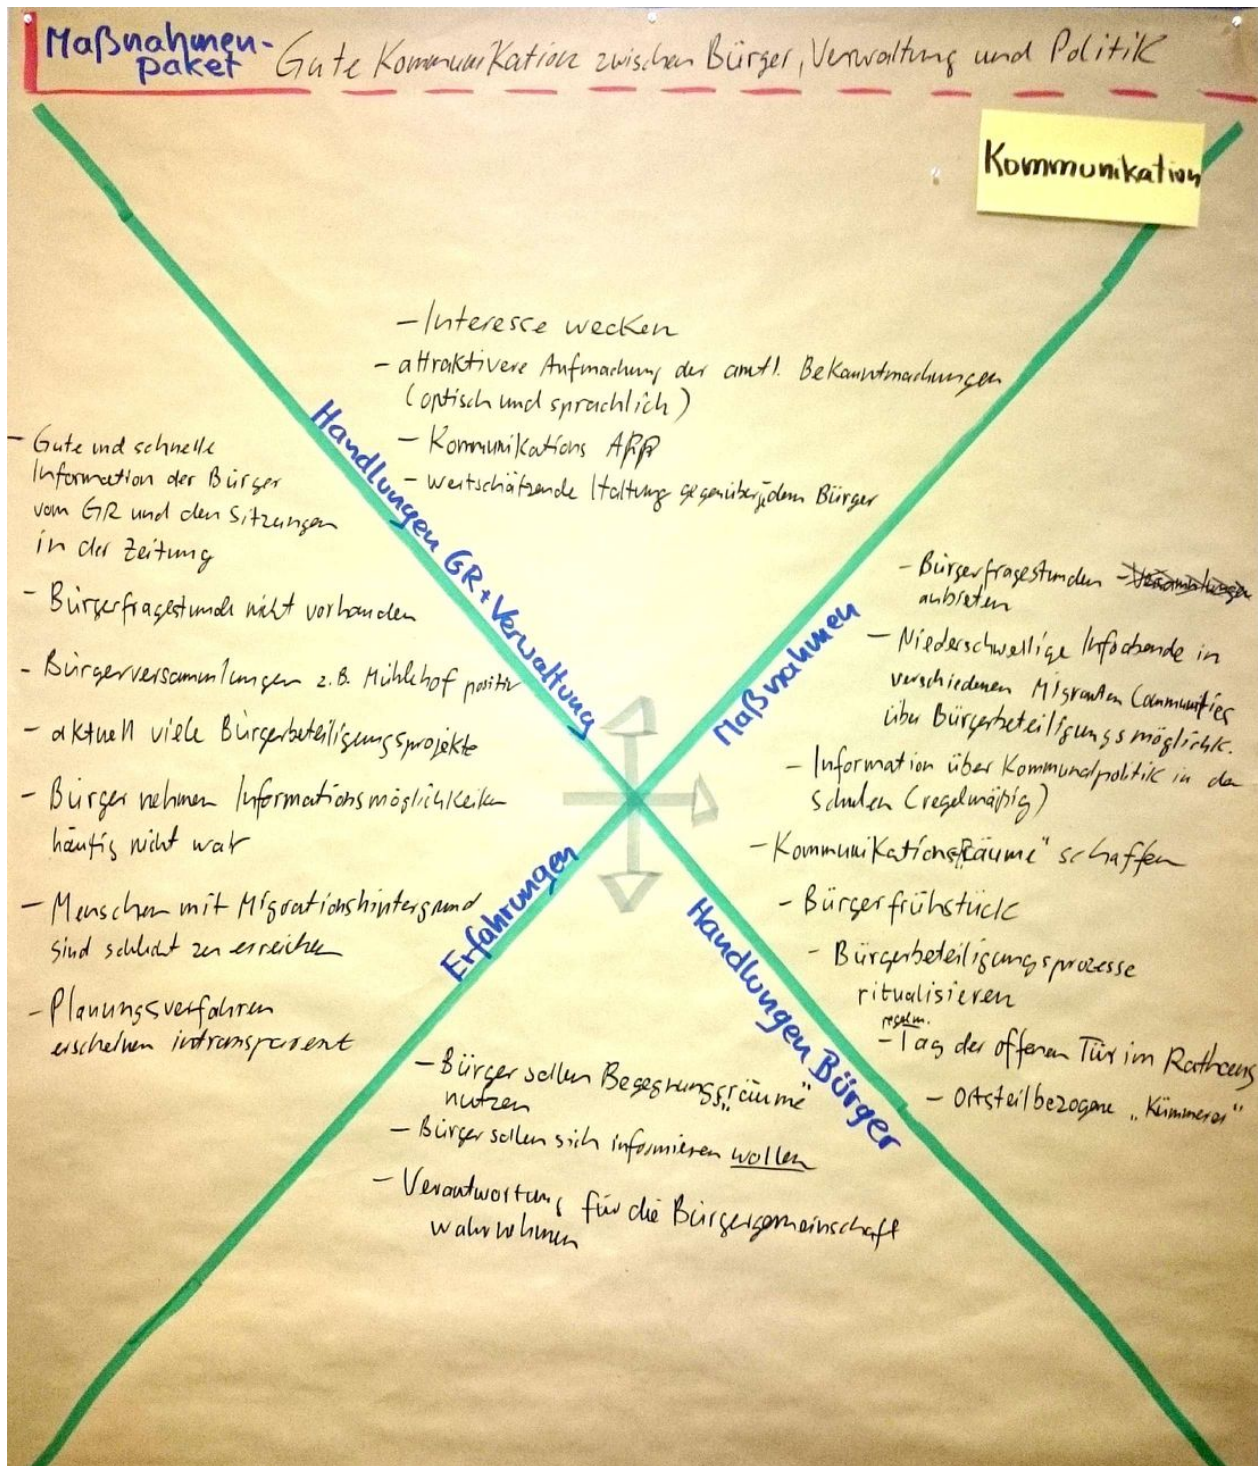 Maßnahmen-
paket
Gute Kommunikation zwischen Bürger, Verwaltung und Politik
Kommunikation
Handlungen GR + Verwaltung
- Interesse wecken
- attraktivere Aufmachung der amtl. Bekanntmachungen
(optisch und sprachlich)
- Kommunikations APP
- wertschätzende Haltung gegenüber jedem Bürger
Erfahrungen
- Gute und schnelle
Information der Bürger
vom GR und den Sitzungen
in der Zeitung
- Bürgerfragestunde nicht vorhanden
- Bürgerversammlungen z.B. Mühlhof positiv
- aktuell viele Bürgerbeteiligungsprojekte
- Bürger nehmen Informationsmöglichkeiten
häufig nicht war
- Menschen mit Migrationshintergrund
sind schlecht zu erreichen
- Planungsverfahren
erscheinen intransparent
Maßnahmen
- Bürgerfragestunden -
anbieten
- Niederschwellige Infoabende in
verschiedenen Migranten Communities
über Bürgerbeteiligungsmöglichk.
- Information über Kommunalpolitik in den
Schulen (regelmäßig)
- Kommunikations„räume" schaffen
- Bürgerfrühstück
- Bürgerbeteiligungsprozesse
ritualisieren
regelm.
- Tag der offenen Tür im Rathaus
- Ortsteilbezogene „Kümmerer"
Handlungen Bürger
- Bürger sollen Begegnungs„räume"
nutzen
- Bürger sollen sich informieren wollen
- Verantwortung für die Bürgergemeinschaft
wahrnehmen